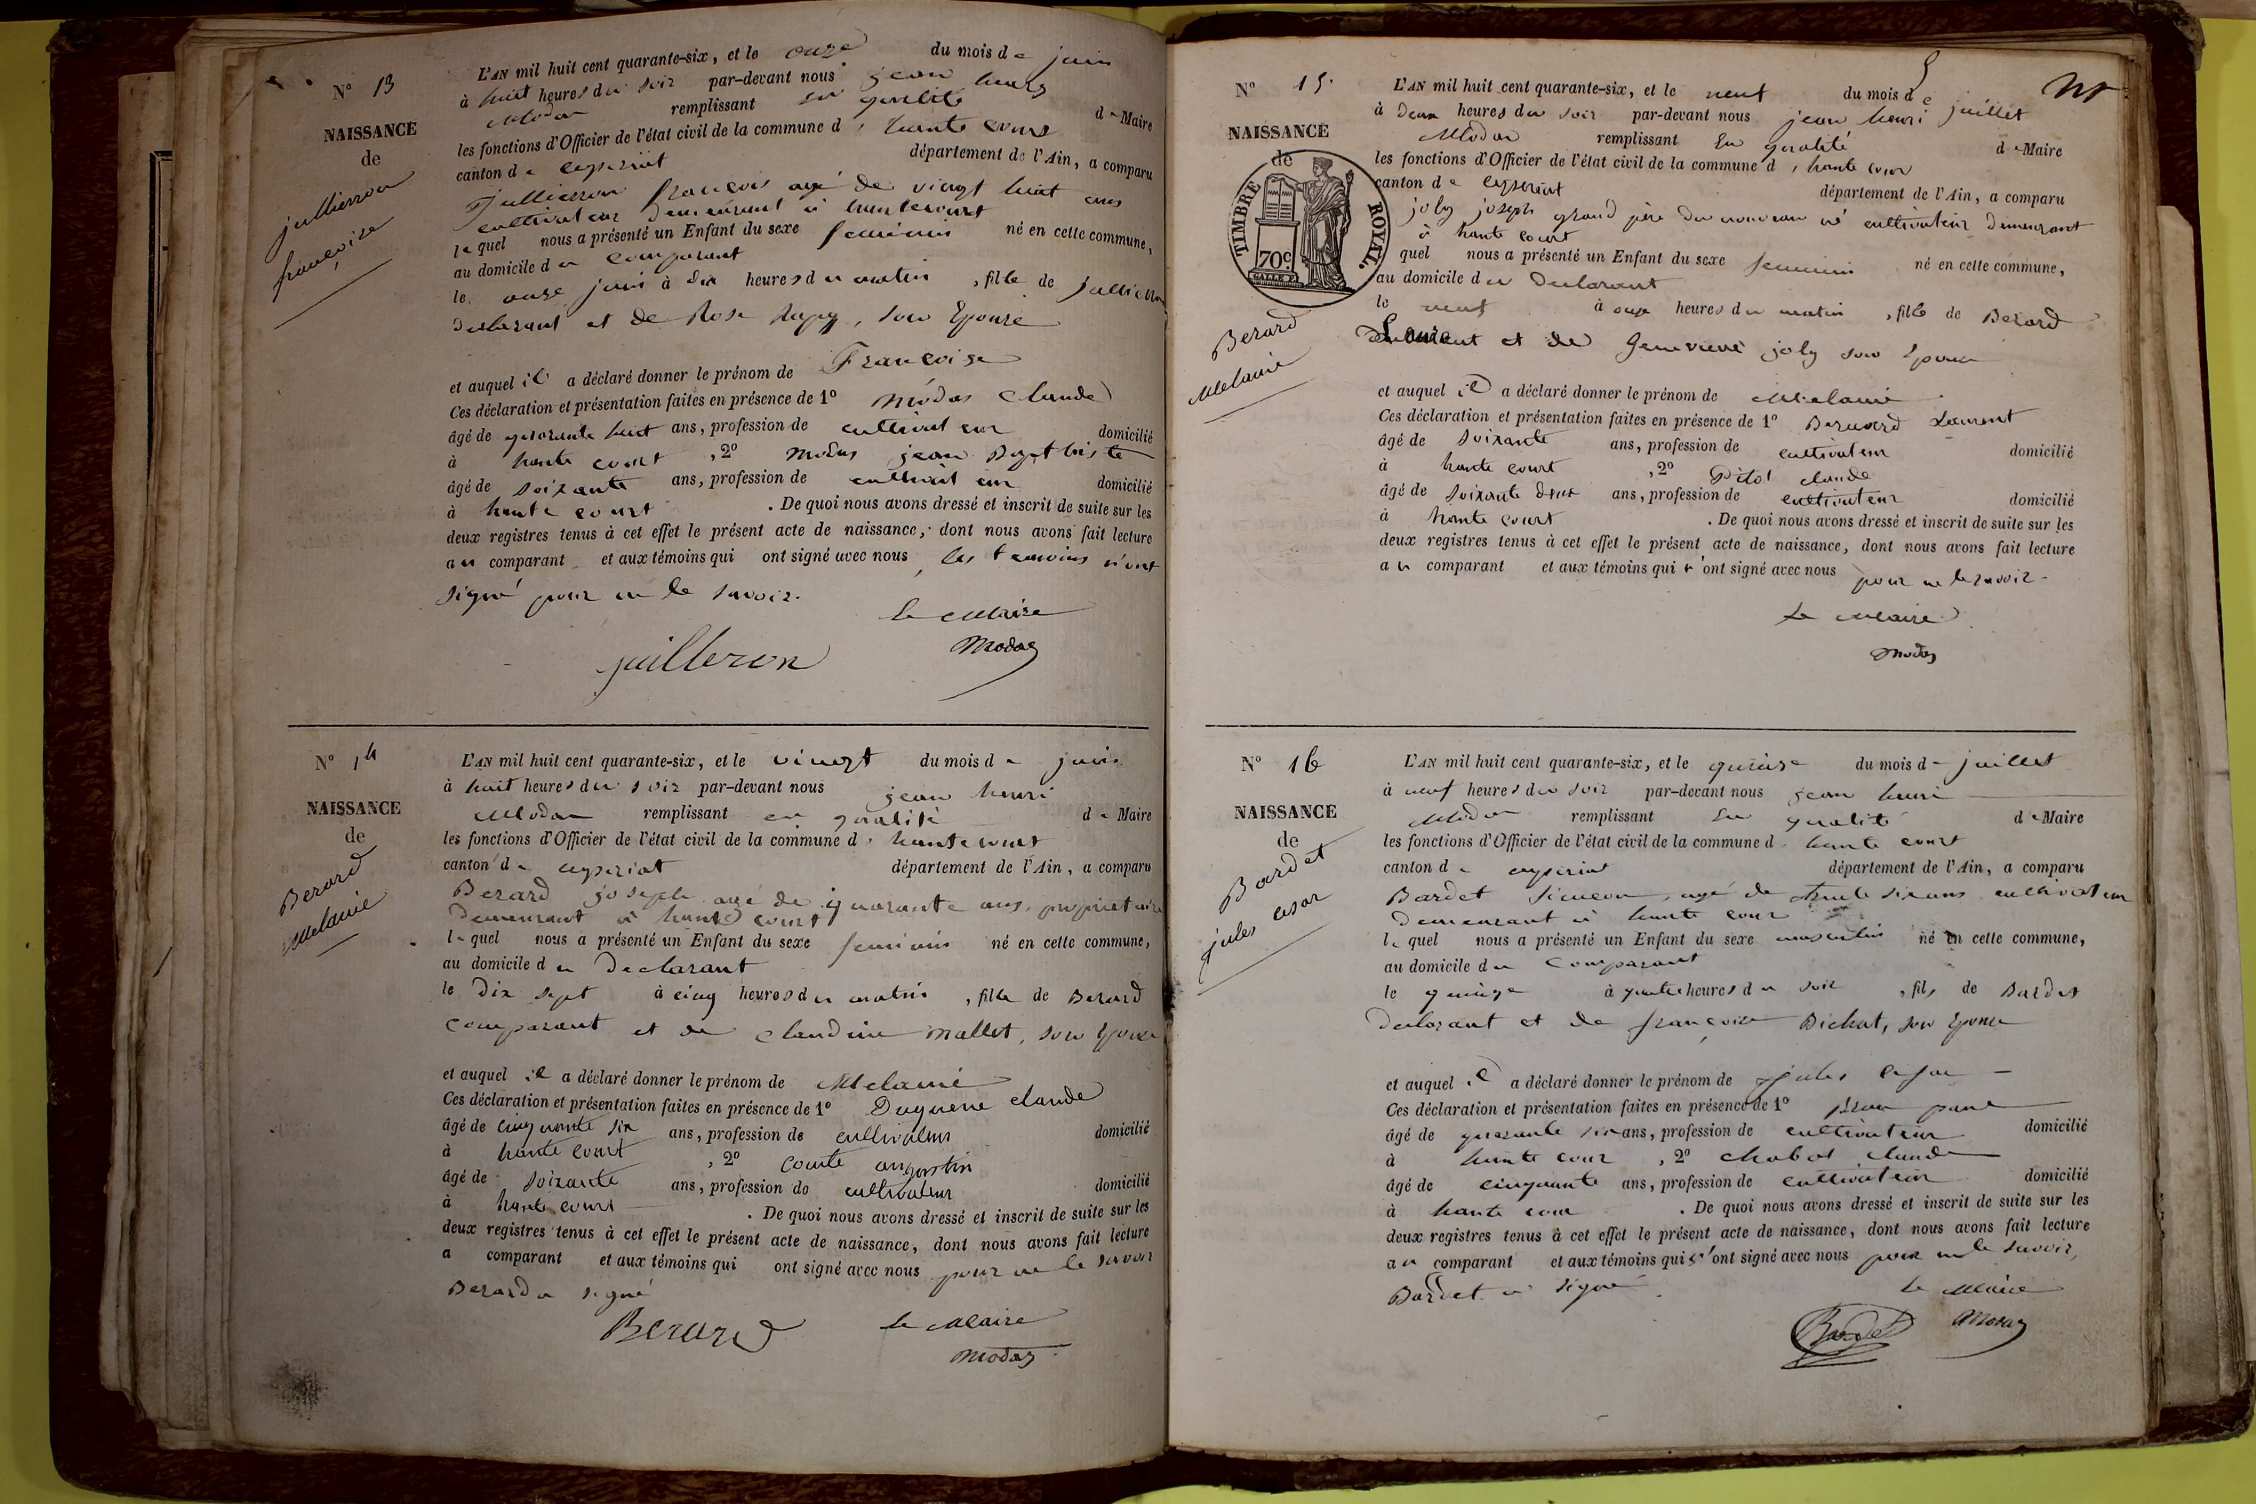 N° 13
NAISSANCE
de
jullierron
françoise
L'AN mil huit cent quarante-six, et le onze du mois de juin
à huit heures du soir par-devant nous jean henry
Modas remplissant en qualité de Maire
les fonctions d'Officier de l'état civil de la commune d'hautecourt
canton de ceyzeriat département de l'Ain, a comparu
Jullierron françois agé de vingt huit ans
cultivateur demeurant à hautecourt
lequel nous a présenté un Enfant du sexe feminin né en cette commune,
au domicile du comparant
le onze juin à dix heures du matin, fille de
declarant et de Rose, son Epouse
et auquel il a déclaré donner le prénom de Françoise
Ces déclaration et présentation faites en présence de 1° Modas Claude
âgé de quarante huit ans, profession de cultivateur domicilié
à haute court, 2° Modas jean Baptbiste
âgé de soixante ans, profession de cultivateur domicilié
à haute court. De quoi nous avons dressé et inscrit de suite sur les
deux registres tenus à cet effet le présent acte de naissance, dont nous avons fait lecture
au comparant et aux témoins qui ont signé avec nous, les temoins n'ont
signé pour ne le savoir.
le Maire
juilleron Modas
N° 14
NAISSANCE
de
Berard
Melanie
L'AN mil huit cent quarante-six, et le vingt du mois de juin
à huit heures du soir par-devant nous jean henri
Modas remplissant en qualité de Maire
les fonctions d'Officier de l'état civil de la commune d'hautecourt
canton de ceyzeriat département de l'Ain, a comparu
Berard joseph agé de quarante ans, proprietaire
demeurant à haute court
lequel nous a présenté un Enfant du sexe feminin né en cette commune,
au domicile du Declarant
le dix sept à cinq heures du matin, fille de Berard
comparant et de claudine Mallet, son Epouse
et auquel il a déclaré donner le prénom de Melanie
Ces déclaration et présentation faites en présence de 1° Duguene claude
âgé de cinquante six ans, profession de cultivateur domicilié
à haute court, 2° Comte augustin
âgé de soixante ans, profession de cultivateur domicilié
à haute court. De quoi nous avons dressé et inscrit de suite sur les
deux registres tenus à cet effet le présent acte de naissance, dont nous avons fait lecture
a comparant et aux témoins qui ont signé avec nous pour ne le savoir
Berard a signé
Berard le Maire
Modas
N° 15.
NAISSANCE
de
TIMBRE ROYAL.
70c
Berard
Melanie
L'AN mil huit cent quarante-six, et le neuf du mois de juillet
à deux heures du soir par-devant nous jean henri
Modas remplissant En qualité de Maire
les fonctions d'Officier de l'état civil de la commune d'haute cour
canton de ceyzeriat département de l'Ain, a comparu
joly joseph grand père du nouveau né cultivateur demeurant
à haute court
quel nous a présenté un Enfant du sexe feminin né en cette commune,
au domicile du Declarant
le neuf à onze heures du matin, fille de Berard
et de Genevieve joly son Epouse
et auquel il a déclaré donner le prénom de Melanie
Ces déclaration et présentation faites en présence de 1° Laurent
âgé de soixante ans, profession de cultivateur domicilié
à haute court, 2° Pitol claude
âgé de soixante deux ans, profession de cultivateur domicilié
à haute court. De quoi nous avons dressé et inscrit de suite sur les
deux registres tenus à cet effet le présent acte de naissance, dont nous avons fait lecture
au comparant et aux témoins qui n'ont signé avec nous pour ne le savoir.
Le Maire
Modas
N° 16
NAISSANCE
de
Bardet
jules cesar
L'AN mil huit cent quarante-six, et le quinze du mois de juillet
à neuf heures du soir par-devant nous jean henri
Modas remplissant En qualité de Maire
les fonctions d'Officier de l'état civil de la commune d'haute court
canton de ceyzeriat département de l'Ain, a comparu
Bardet Simeon, agé de trente six ans cultivateur
demeurant à haute cour
lequel nous a présenté un Enfant du sexe masculin né en cette commune,
au domicile du Comparant
le quinze à quatre heures du soir, fils de Bardet
declarant et de françoise Bichat, son Epouse
et auquel il a déclaré donner le prénom de jules cesar
Ces déclaration et présentation faites en présence de 1°
âgé de quarante six ans, profession de cultivateur domicilié
à haute cour, 2° chabot claude
âgé de cinquante ans, profession de cultivateur domicilié
à haute cour. De quoi nous avons dressé et inscrit de suite sur les
deux registres tenus à cet effet le présent acte de naissance, dont nous avons fait lecture
au comparant et aux témoins qui n'ont signé avec nous pour ne le savoir,
Bardet a signé.
le Maire
Bardet Modas